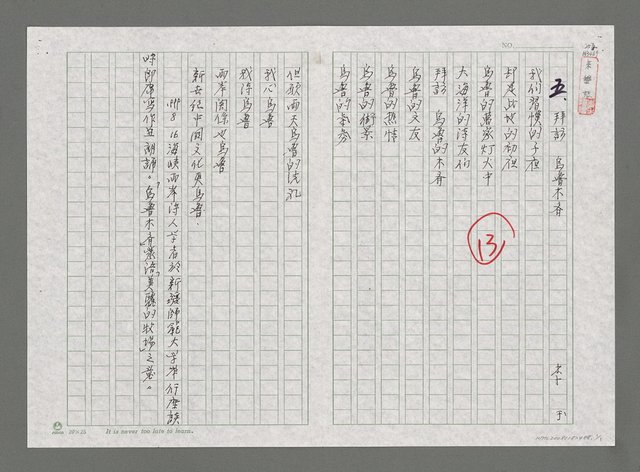 NO.
五、拜訪 烏魯木齊
我們習慣的子夜
却是此地的初夜
烏魯的萬家灯火中
大海洋的詩友们
拜訪 烏魯的木齊
烏魯的文友
烏魯的熱情
烏魯的街景
烏魯的
13
但願兩天烏魯的洗礼
我心烏魯
我詩烏魯
兩岸関係也烏魯
新世纪中國文化更烏魯.
8 16海峽兩岸詩人学者於新疆師範大学举行座談
時即席寫作並朗誦。「烏魯木齊」蒙語「美麗的牧場」之意。
20×25 It is never too late to learn.